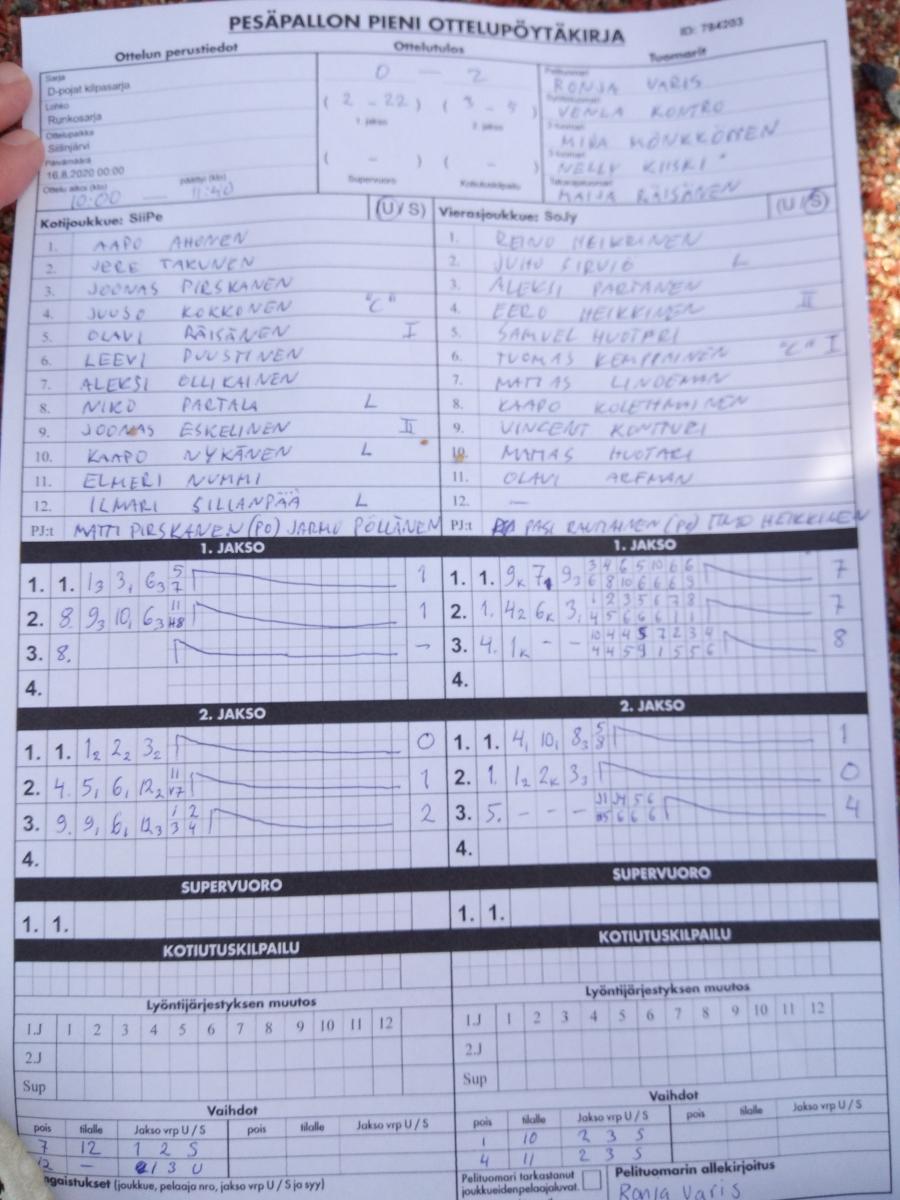 PESÄPALLON PIENI OTTELUPÖYTÄKIRJA
ID: 784203
Ottelun perustiedot
Ottelutulos
Tuomarit
Sarja
D-pojat kilpasarja
Lohko
Runkosarja
Ottelupaikka
Siilinjärvi
Päivämäärä
16.8.2020 00:00
Ottelu alkoi (klo) päättyi (klo)
10:00 — 11:40
0 — 2
( 2 - 22 ) ( 3 - 5 )
1. jakso 2. jakso
( - ) ( - )
Supervuoro Kotiutuskilpailu
RONJA VARIS
VENLA KONTRO
MIRA MÖNKKÖNEN
NELLY KIISKI
MAIJA RÄISÄNEN
Kotijoukkue: SiiPe (U / S)
1. AAPO AHONEN
2. JERE TAKUNEN
3. JOONAS PIRSKANEN
4. JUUSO KOKKONEN "C"
5. OLAVI RÄISÄNEN I
6. LEEVI PUUSTINEN
7. ALEKSI OLLIKAINEN
8. NIKO PARTALA L
9. JOONAS ESKELINEN II
10. KAAPO NYKÄNEN L
11. ELMERI NUMMI
12. ILMARI SILLANPÄÄ L
PJ:t MATTI PIRSKANEN (PO) JARMO PÖLLÄNEN
Vierasjoukkue: SoJy (U / S)
1. REINO HEIKKINEN
2. JUHO SIRVIÖ L
3. ALEKSI PARTANEN
4. EERO HEIKKINEN II
5. SAMUEL HUOTARI
6. TUOMAS KEMPPAINEN "C" I
7. MATIAS LINDEMAN
8. KAAPO KOLEHMAINEN
9. VINCENT KONTTURI
10. HUOTARI
11. OLAVI
12. —
PJ:t PASI RAUTIAINEN (PO) TIMO HEIKKINEN
1. JAKSO
1. 1. 1₃ 3₁ 6₃ 5 7 1
2. 8. 9₃ 10₁ 6₃ 11 1
3. 8. -
4.
2. JAKSO
1. 1. 1₂ 2₂ 3₂ 0
2. 4. 5₁ 6₁ 12₂ 11 1
3. 9. 9₁ 6₁ 12₃ 1 2 3 4 2
4.
SUPERVUORO
1. 1.
KOTIUTUSKILPAILU
Lyöntijärjestyksen muutos
1.J 1 2 3 4 5 6 7 8 9 10 11 12
2.J
Sup
Vaihdot
pois tilalle Jakso vrp U / S pois tilalle Jakso vrp U / S
7 12 1 2 S
12 - 1 3 U
1. JAKSO
1. 1. 9ₖ 7₁ 9₃ 3 4 6 5 10 6 6 7
6 8 10 6 6 6 9
2. 1. 4₂ 6ₖ 3₁ 1 2 3 5 6 7 8 7
4 5 6 6 6 1 1
3. 4. 1ₖ - - 10 4 4 5 7 2 3 4 8
4 4 5 9 1 5 5 6
4.
2. JAKSO
1. 1. 4₁ 10₁ 8₃ 5 8 1
2. 1. 1₂ 2ₖ 3₃ 0
3. 5. - - - 4
4.
SUPERVUORO
1. 1.
KOTIUTUSKILPAILU
Lyöntijärjestyksen muutos
1.J 1 2 3 4 5 6 7 8 9 10 11 12
2.J
Sup
Vaihdot
pois tilalle Jakso vrp U / S pois tilalle Jakso vrp U / S
1 10 2 3 S
4 11 2 3 S
ngaistukset (joukkue, pelaaja nro, jakso vrp U / S ja syy)
Pelituomari tarkastanut
joukkueidenpelaajaluvat.
Pelituomarin allekirjoitus
Ronja Varis